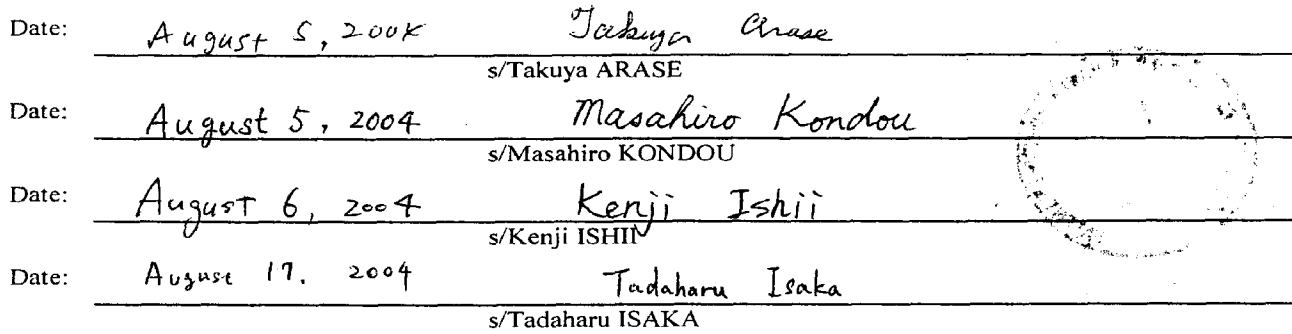 Date: August 5, 2004 Takuya Arase
s/Takuya ARASE
Date: August 5, 2004 Masahiro Kondou
s/Masahiro KONDOU
Date: August 6, 2004 Kenji Ishii
s/Kenji ISHII
Date: August 17. 2004 Tadaharu Isaka
s/Tadaharu ISAKA